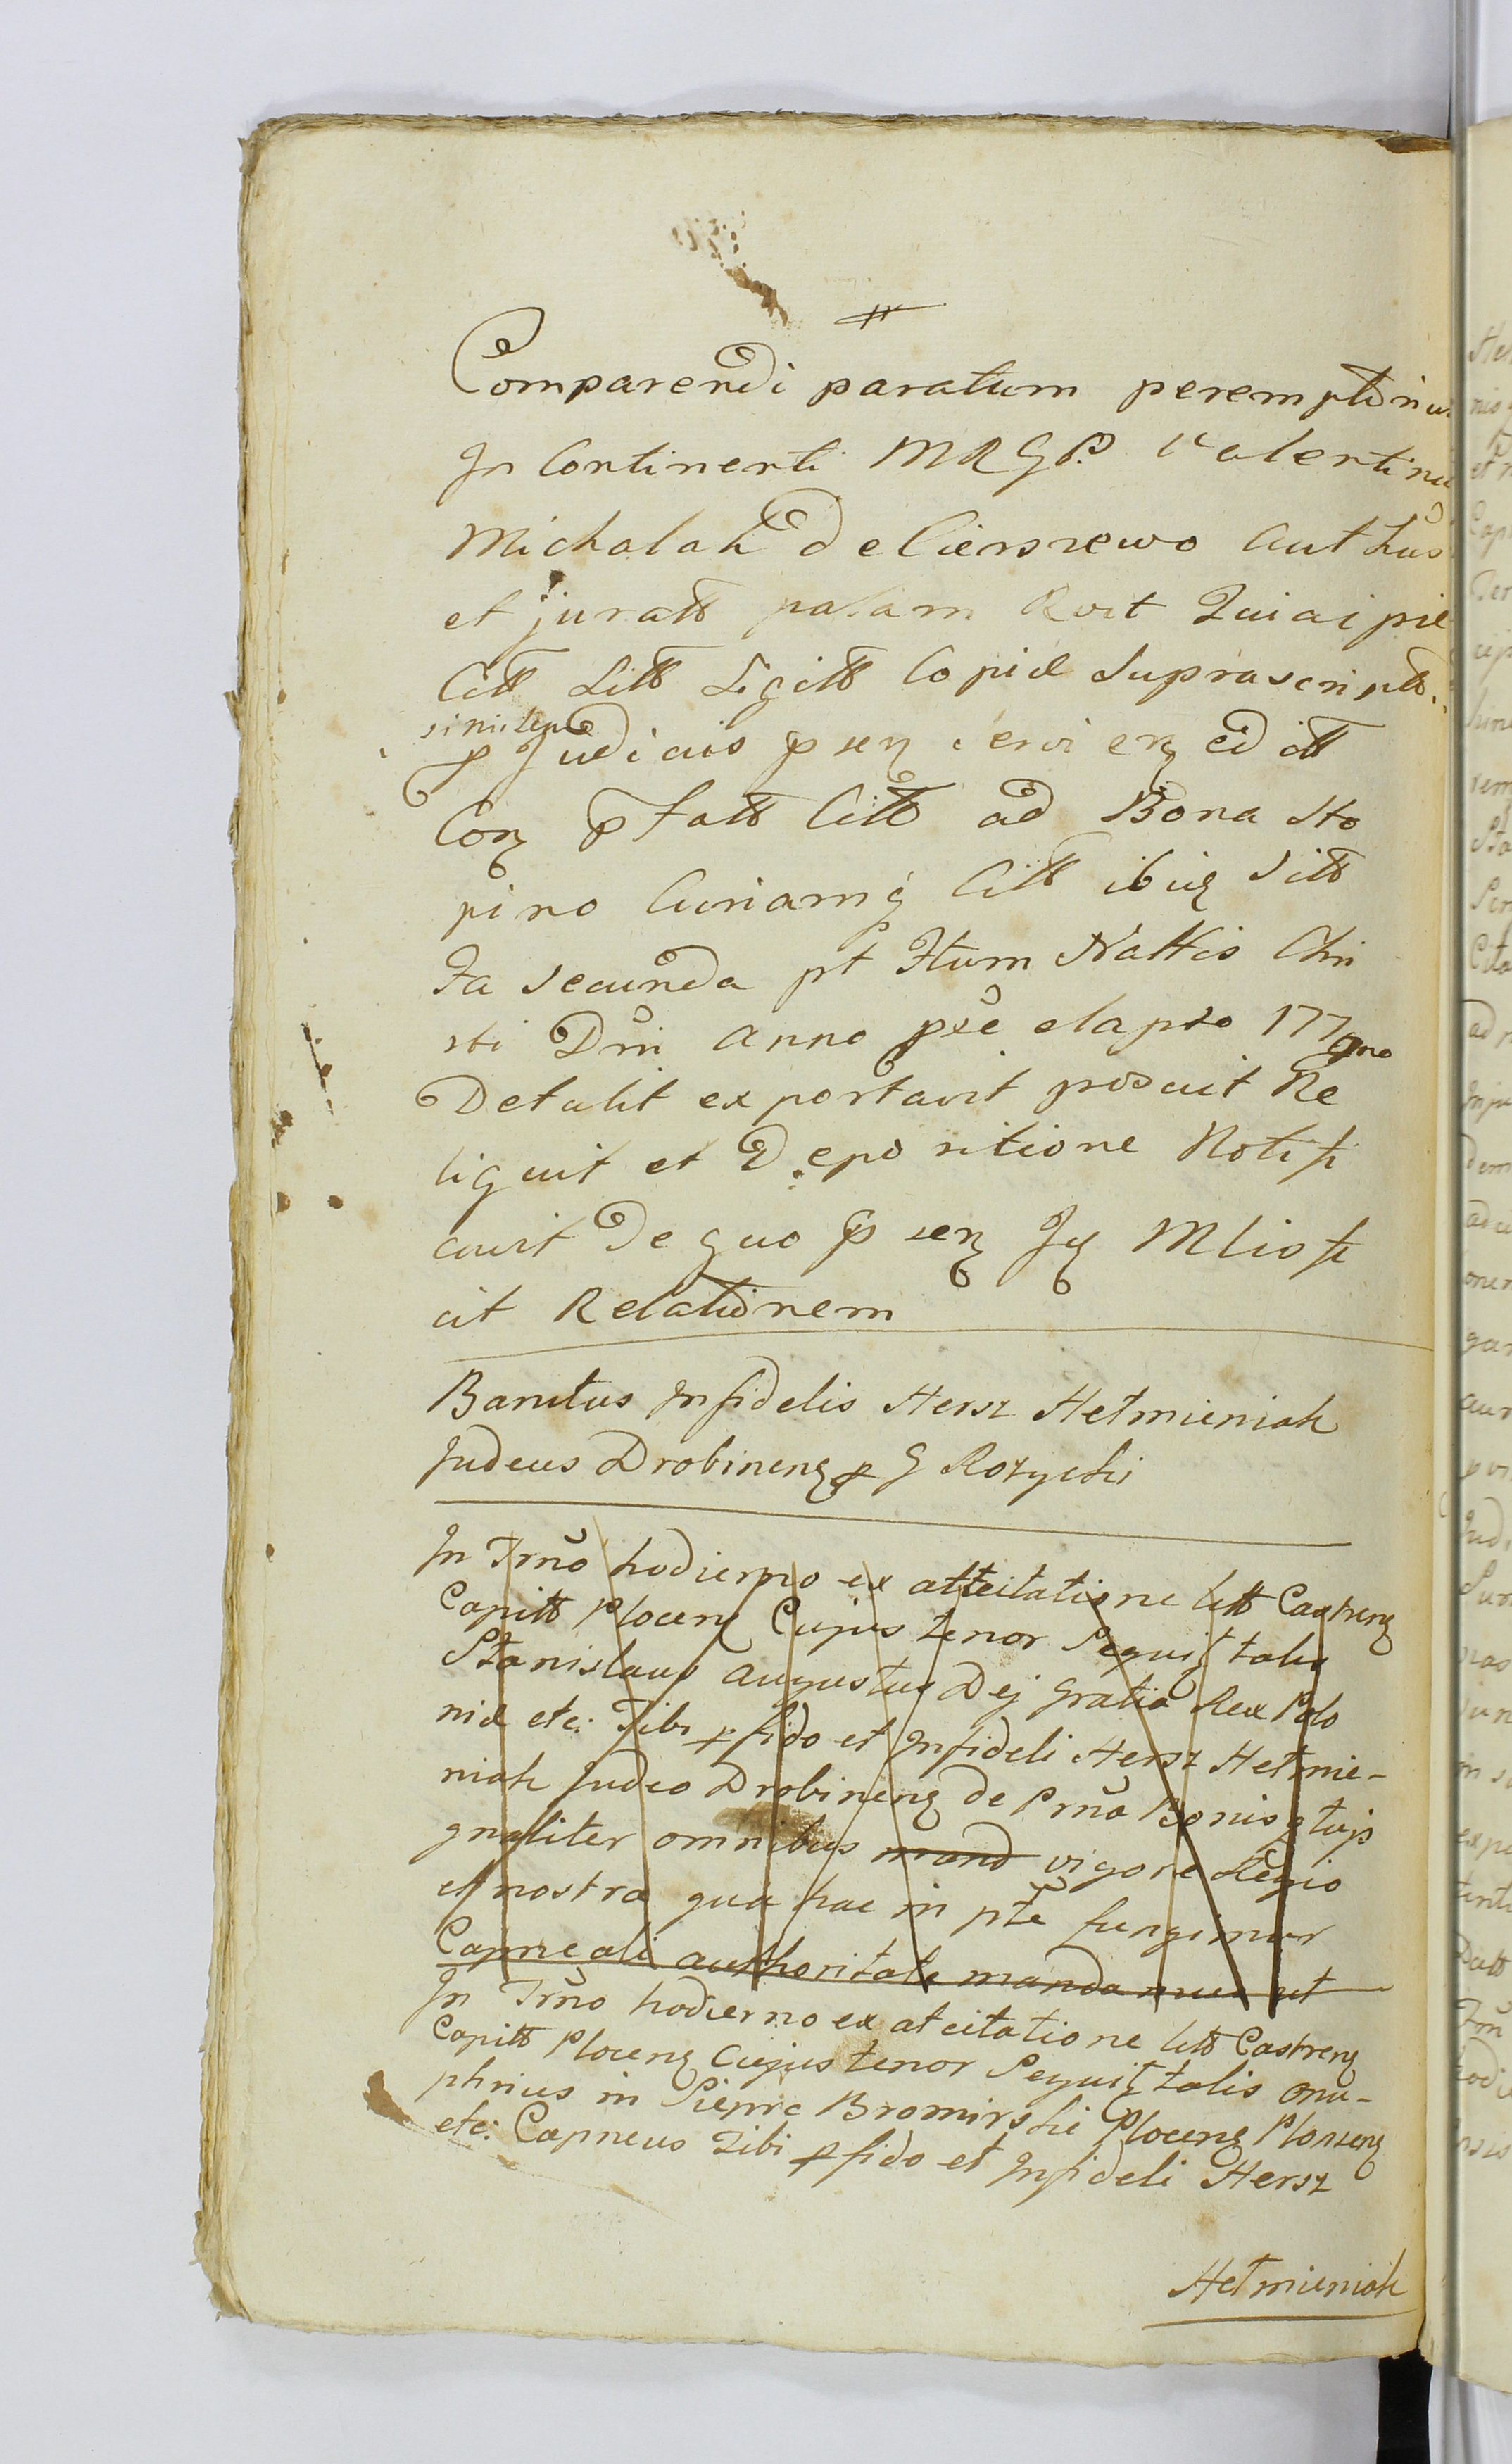 Comparendi paratum peremptorium
In Continenti MRGP. Valentinu
Michalak de Cierszewo Auth
et juratt palam Rvit Quia ipse
Citt Litt Sigitt Copiæ Suprascriptt
similem
Judiciis psen ervi en editt
Con pfatt Citt ad Bona Sto
pino Curiamq Citt ibiq Sitt
Fa secunda pt Ftum Nattis Chri
sti Dni Anno pxe elapso 1779no
Detulit exportavit posuit Re
liquit et Depositione Notifi
cavit De quo psen Jq Mlis fe
cit Relationem
Banitus Infidelis Hersz Hetmieniak
Judeus Drobinens p G Rozycki
In Trno hodierno ex attcitatione litt Castrens
Capitt Plocens Cujus tenor Sequit talis
Stanislaus Augustus Dej Gratia Rex Polo
niæ etc: Tibi pfido et Infideli Hersz Hetmie-
niak Judeo Drobinens de Prna Bonisq tuis
gnaliter omnibus mand vigore Regio
et nostra qua hac in pte fungimur
Capneali authoritate mandamus ut
In Trno hodierno ex atcitatione litt Castrens
Capitt Plocens Cujus tenor Sequit talis Onu-
phrius in Siepre Bromirski Plocens Plonsens
etc: Capneus Tibi pfido et Infideli Hersz
Hetmieniak